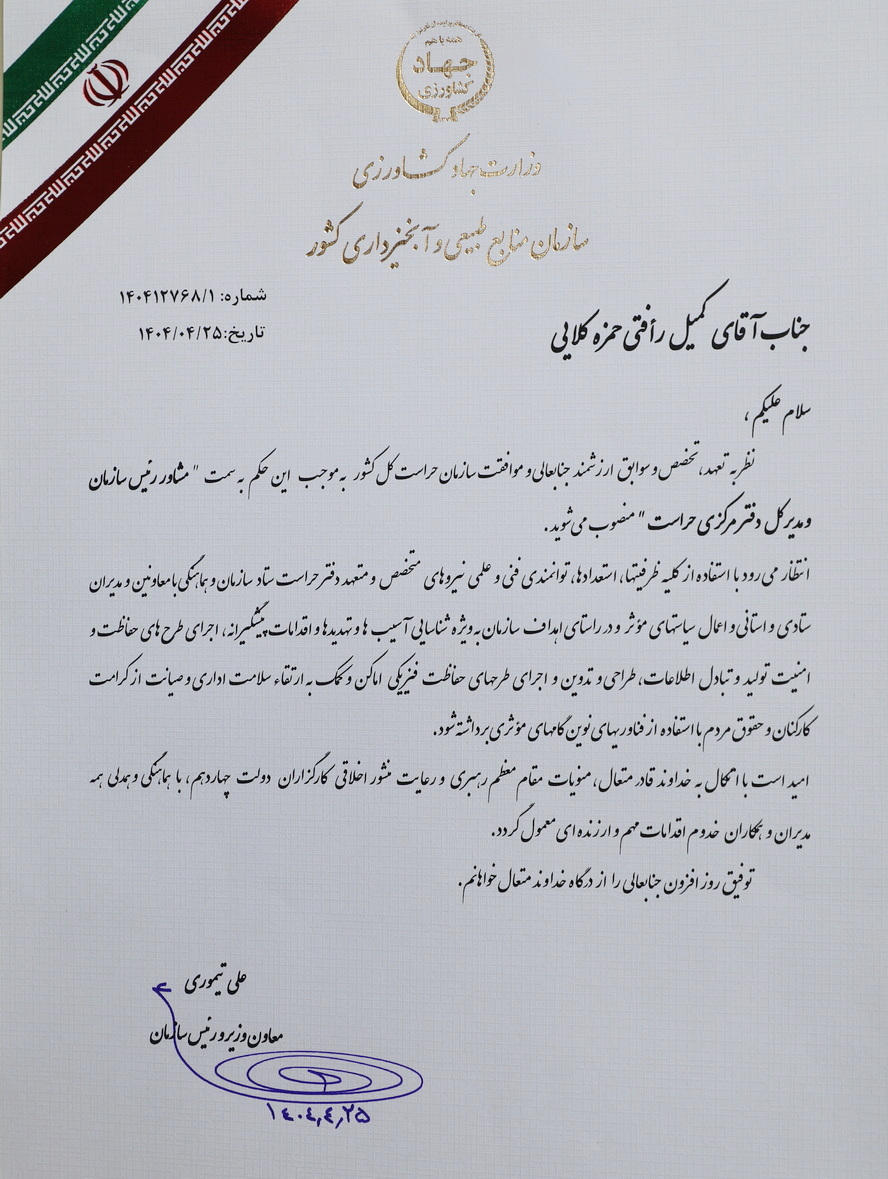 همه با هم
جهاد
کشاورزی
وزارت جهاد کشاورزی
سازمان منابع طبیعی و آبخیزداری کشور
شماره: ۱۴۰۴۱۲۷۶۸/۱
تاریخ:۱۴۰۴/۰۴/۲۵
جناب آقای کمیل رأفتی حمزه کلایی
سلام علیکم ،
نظر به تعهد، تخصص و سوابق ارزشمند جنابعالی و موافقت سازمان حراست کل کشور به موجب این حکم به سمت "مشاور رئیس سازمان
و مدیر کل دفتر مرکزی حراست" منصوب می شوید.
انتظار می رود با استفاده از کلیه ظرفیتها، استعدادها، توانمندی فنی و علمی نیروهای متخصص و متعهد دفتر حراست ستاد سازمان و هماهنگی با معاونین و مدیران
ستادی و استانی و اعمال سیاستهای مؤثر و در راستای اهداف سازمان به ویژه شناسایی آسیب ها و تهدیدها و اقدامات پیشگیرانه، اجرای طرح های حفاظت و
امنیت تولید و تبادل اطلاعات، طراحی و تدوین و اجرای طرحهای حفاظت فیزیکی اماکن و کمک به ارتقاء سلامت اداری و صیانت از کرامت
کارکنان و حقوق مردم با استفاده از فناوریهای نوین گامهای مؤثری برداشته شود.
امید است با اتکال به خداوند قادر متعال، منویات مقام معظم رهبری و رعایت منشور اخلاقی کارگزاران دولت چهاردهم، با هماهنگی و همدلی همه
مدیران و همکاران خدوم اقدامات مهم و ارزنده ای معمول گردد.
توفیق روز افزون جنابعالی را از درگاه خداوند متعال خواهانم.
علی تیموری
معاون وزیر و رئیس سازمان
۱۴۰۴,۴,۲۵